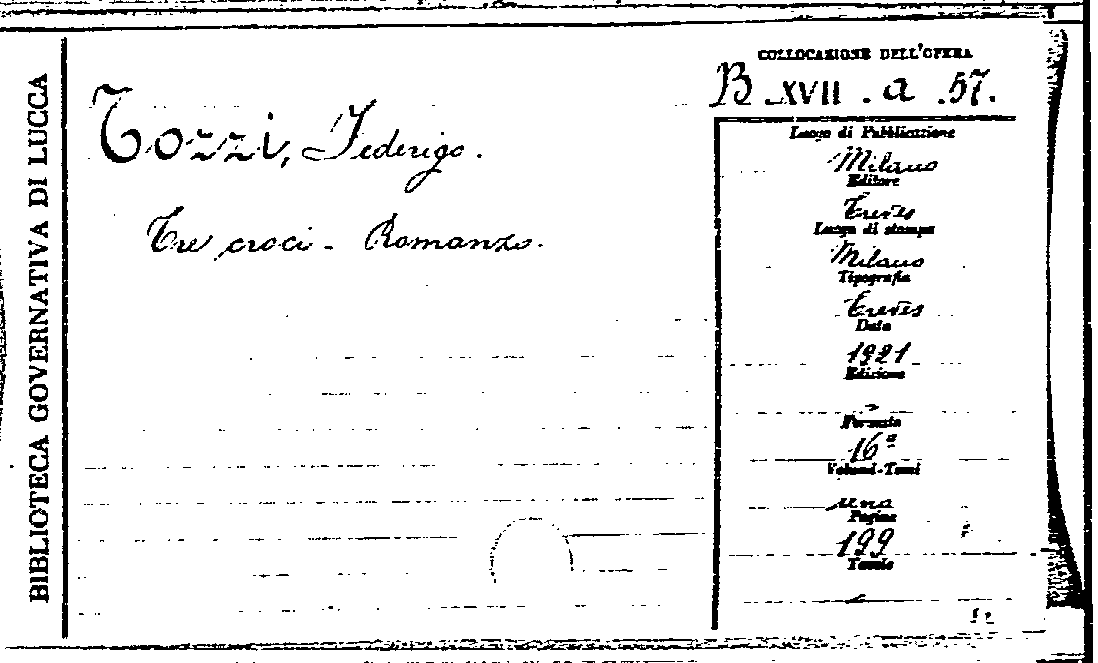 BIBLIOTECA GOVERNATIVA DI LUCCA
COLLOCAZIONE DELL'OPERA
B XVII . a . 57.
Tozzi, Federigo.
Tre croci - Romanzo.
Luogo di Pubblicazione
Milano
Editore
Treves
Luogo di stampa
Milano
Tipografia
Treves
Data
1921
Edizione
-
Formato
16º
Volumi-Tomi
uno
Pagine
199
Tavole